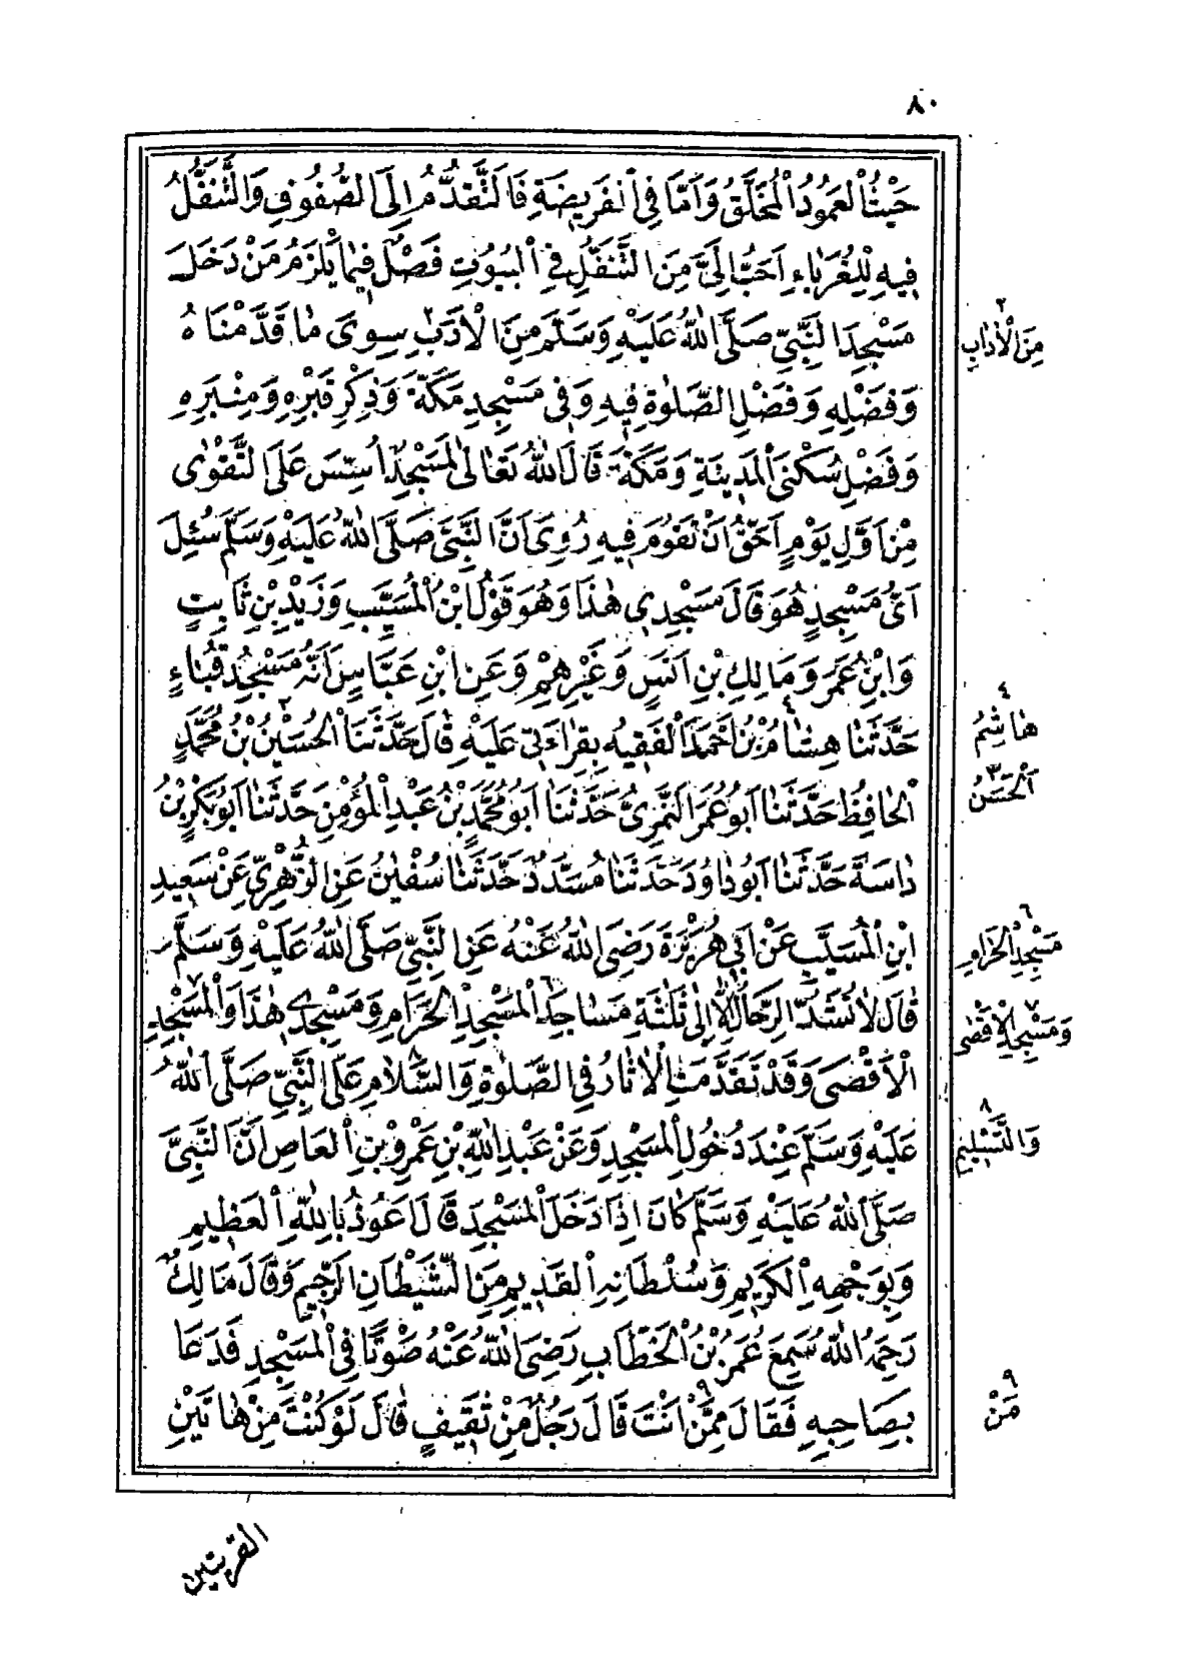 ٨٠
حَيْثُ الْعَمُودُ الْمُخَلَّقُ وَاَمَّا فِى الْفَرِيضَةِ فَالتَّقَدُّمُ اِلَى الصُّفُوفِ وَالتَّنَفُّلُ
فِيهِ لِلْغُرَبَاءِ اَحَبُّ اِلَىَّ مِنَ التَّنَفُّلِ فِى الْبُيُوتِ فَصْلٌ فِيمَا يَلْزَمُ مَنْ دَخَلَ
مَسْجِدَ النَّبِىِّ صَلَّى اللهُ عَلَيْهِ وَسَلَّمَ مِنَ الْاَدَبِ ٢ سِوٰى مَا قَدَّمْنَاهُ
وَفَضْلِهِ وَفَضْلِ الصَّلٰوةِ فِيهِ وَفِى مَسْجِدِ مَكَّةَ وَذِكْرِ قَبْرِهِ وَمِنْبَرِهِ
وَفَضْلِ سُكْنَى الْمَدِينَةِ وَمَكَّةَ قَالَ اللهُ تَعَالٰى لَمَسْجِدٌ اُسِّسَ عَلَى التَّقْوٰى
مِنْ اَوَّلِ يَوْمٍ اَحَقُّ اَنْ تَقُومَ فِيهِ رُوِىَ اَنَّ النَّبِىَّ صَلَّى اللهُ عَلَيْهِ وَسَلَّمَ سُئِلَ
اَىُّ مَسْجِدٍ هُوَ قَالَ مَسْجِدِى هٰذَا وَهُوَ قَوْلُ ابْنِ الْمُسَيَّبِ وَزَيْدِ بْنِ ثَابِتٍ
وَابْنِ عُمَرَ وَمَالِكِ بْنِ اَنَسٍ وَغَيْرِهِمْ وَعَنِ ابْنِ عَبَّاسٍ اَنَّهُ مَسْجِدُ قُبَاءٍ
حَدَّثَنَا هِشَامُ ٤ بْنُ اَحْمَدَ الْفَقِيهُ بِقِرَاءَتِى عَلَيْهِ قَالَ حَدَّثَنَا الْحُسَيْنُ ٣ بْنُ مُحَمَّدٍ
الْحَافِظُ حَدَّثَنَا اَبُو عُمَرَ النَّمَرِىُّ حَدَّثَنَا اَبُو مُحَمَّدِ بْنُ عَبْدِ الْمُؤْمِنِ حَدَّثَنَا اَبُو بَكْرِ بْنُ
دَاسَةَ حَدَّثَنَا اَبُو دَاوُدَ حَدَّثَنَا مُسَدَّدٌ حَدَّثَنَا سُفْيٰنُ عَنِ الزُّهْرِىِّ عَنْ سَعِيدِ
ابْنِ الْمُسَيَّبِ عَنْ اَبِى هُرَيْرَةَ رَضِىَ اللهُ عَنْهُ عَنِ النَّبِىِّ صَلَّى اللهُ عَلَيْهِ وَسَلَّمَ
قَالَ لَا تُشَدُّ الرِّحَالُ اِلَّا اِلٰى ثَلٰثَةِ مَسَاجِدَ ٦ الْمَسْجِدِ الْحَرَامِ وَمَسْجِدِى هٰذَا وَالْمَسْجِدِ ٧
الْاَقْصٰى وَقَدْ تَقَدَّمَتِ الْاٰثَارُ فِى الصَّلٰوةِ وَالسَّلَامِ ٨ عَلَى النَّبِىِّ صَلَّى اللهُ
عَلَيْهِ وَسَلَّمَ عِنْدَ دُخُولِ الْمَسْجِدِ وَعَنْ عَبْدِ اللهِ بْنِ عَمْرِو بْنِ الْعَاصِ اَنَّ النَّبِىَّ
صَلَّى اللهُ عَلَيْهِ وَسَلَّمَ كَانَ اِذَا دَخَلَ الْمَسْجِدَ قَالَ اَعُوذُ بِاللهِ الْعَظِيمِ
وَبِوَجْهِهِ الْكَرِيمِ وَسُلْطَانِهِ الْقَدِيمِ مِنَ الشَّيْطَانِ الرَّجِيمِ وَقَالَ مَالِكٌ
رَحِمَهُ اللهُ سَمِعَ عُمَرُ بْنُ الْخَطَّابِ رَضِىَ اللهُ عَنْهُ صَوْتًا فِى الْمَسْجِدِ فَدَعَا
بِصَاحِبِهِ فَقَالَ مِمَّنْ ٩ اَنْتَ قَالَ رَجُلٌ مِنْ ثَقِيفٍ قَالَ لَوْ كُنْتَ مِنْ هَاتَيْنِ
٢
مِنَ الْاٰدَابِ
٤
هَاشِمُ
٣
اَلْحَسَنُ
٦
مَسْجِدِ الْحَرَامِ
٧
وَمَسْجِدِ الْاَقْصٰى
٨
وَالتَّسْلِيمِ
٩
مَنْ
القريتين